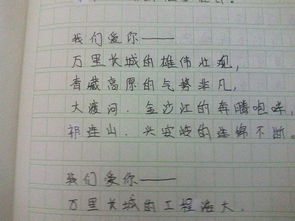 我们爱你——
万里长城的雄伟壮观，
青藏高原的气势非凡，
大渡河、金沙江的奔腾咆哮，
祁连山、兴安岭的连绵不断。
我们爱你——
万里长城的工程浩大